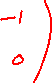 -1
0
)